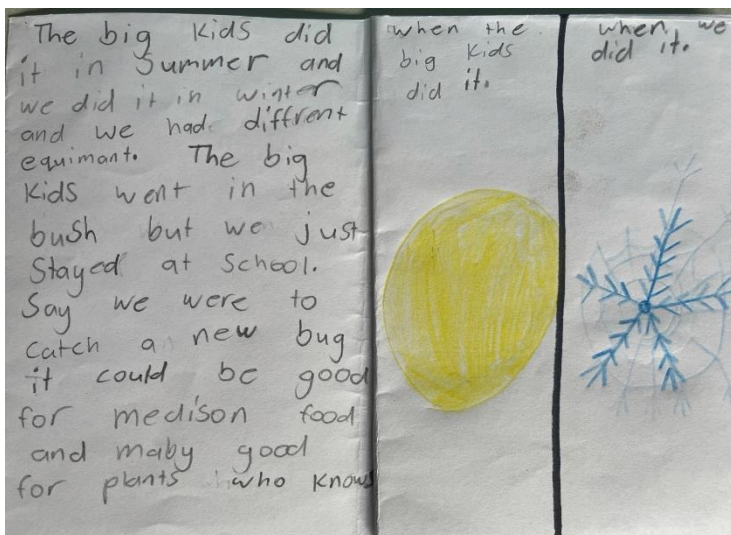 The big kids did
it in Summer and
we did it in winter
and we had diffrent
equimant. The big
kids went in the
bush but we just
Stayed at School.
Say we were to
catch a new bug
it could be good
for medison food
and maby good
for plants who knows
when the
big kids
did it.
when we
did it.